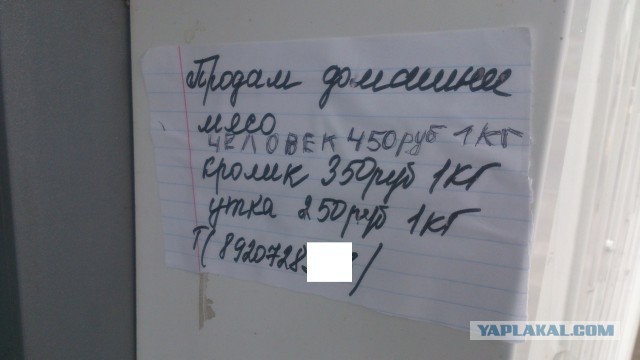 Продам домашние
мясо
ЧЕЛОВЕК 450 руб 1 КГ
кролик 350 руб 1 КГ
утка 250 руб 1 КГ
Т( 8920728
YAPLAKAL.COM